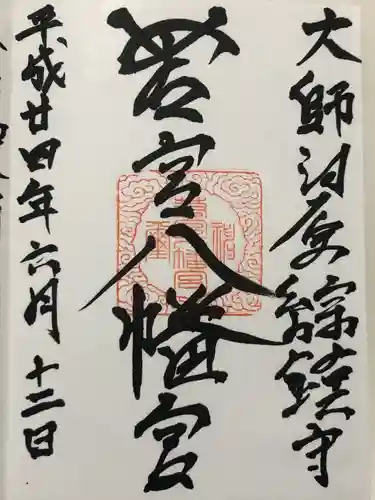 大師河原総鎮守
若宮八幡宮
平成廿四年六月十二日